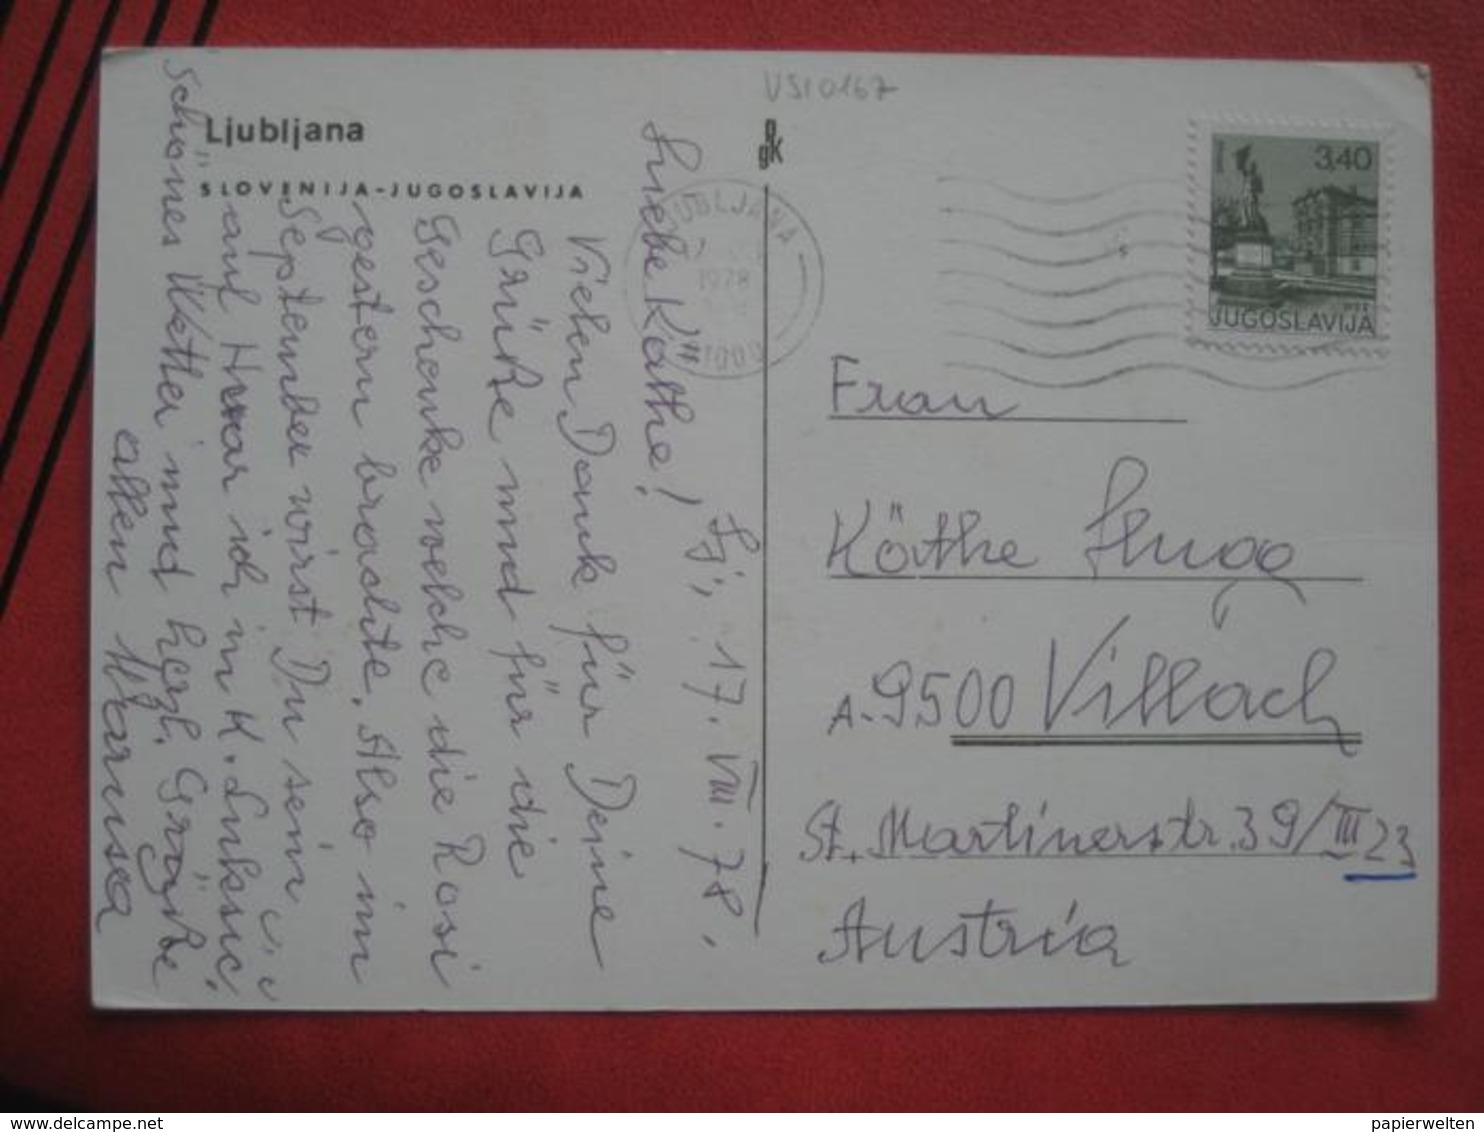 VSI0167
Ljubljana
SLOVENIJA-JUGOSLAVIJA
gk
LJUBLJANA
1978
3,40
JUGOSLAVIJA
Lj., 17. VIII. 78.
Liebe Käthe!
Vielen Dank für Deine
Grüße und für die
Geschenke welche die Rosi
gestern brachte. Also im
September wirst Du sein
auf Hvar ich in K.
Schönes Wetter und herzl. Grüße
allen Marusa
Frau
Käthe
A-9500 Villach
St. Martinerstr. 39/III 23
Austria
papierwelten
delcampe.net